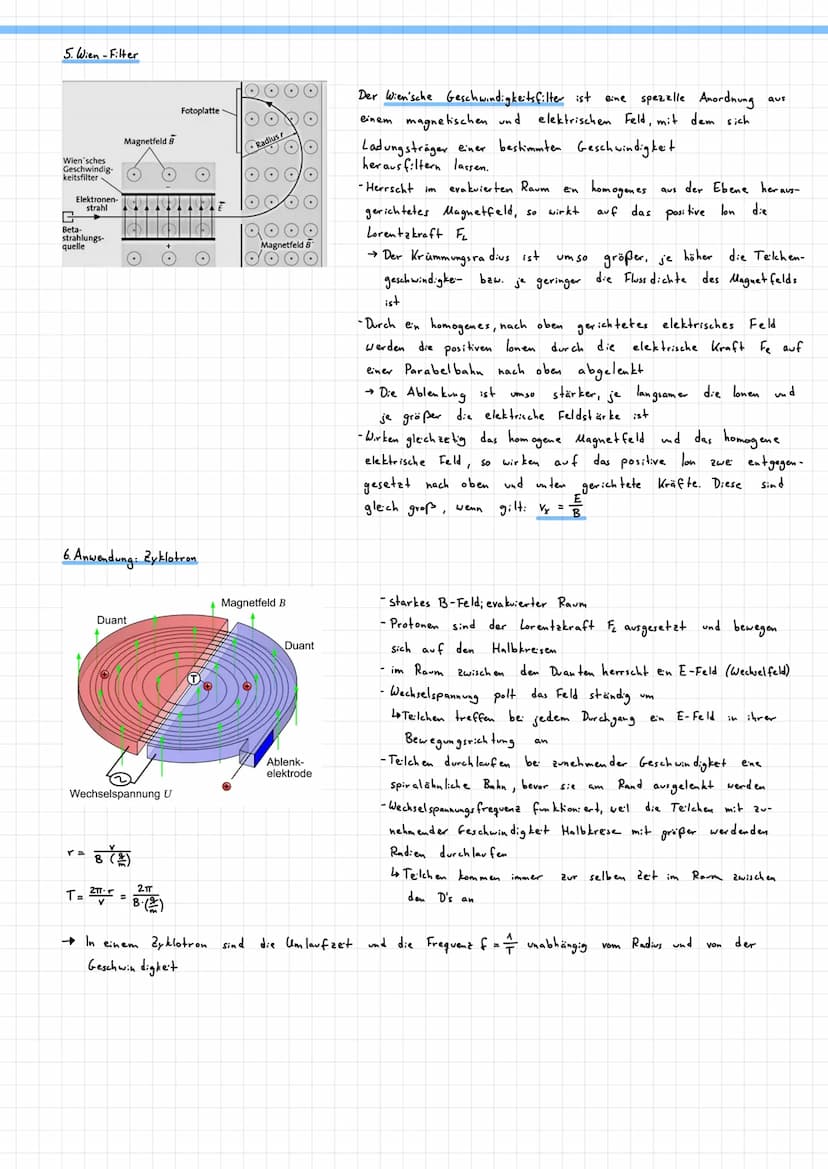 5. Wien-Filter
Fotoplatte
Radius r
Magnetfeld B
Wien´sches
Geschwindig-
keitsfilter
–
Elektronen-
strahl
E
Beta-
strahlungs-
quelle
+
Magnetfeld B
Der Wien'sche Geschwindigkeitsfilter ist eine spezelle Anordnung aus
einem magnetischen und elektrischen Feld, mit dem sich
Ladungsträger einer bestimmten Geschwindigkeit
herausfiltern lassen.
- Herrscht im evakuierten Raum ein homogenes aus der Ebene heraus-
gerichtetes Magnetfeld, so wirkt auf das positive Ion die
Lorentzkraft FL
→ Der Krümmungsradius ist umso größer, je höher die Teilchen-
geschwindigkei- bzw. je geringer die Flussdichte des Magnetfelds
ist
- Durch ein homogenes, nach oben gerichtetes elektrisches Feld
werden die positiven Ionen durch die elektrische Kraft Fe auf
einer Parabelbahn nach oben abgelenkt
→ Die Ablenkung ist umso stärker, je langsamer die Ionen und
je größer die elektrische Feldstärke ist
- Wirken gleichzeitig das homogene Magnetfeld und das homogene
elektrische Feld, so wirken auf das positive Ion zwei entgegen-
gesetzt nach oben und unten gerichtete Kräfte. Diese sind
gleich groß, wenn gilt: vx = E/B
6. Anwendung: Zyklotron
Magnetfeld B
Duant
Duant
T
Ablenk-
elektrode
Wechselspannung U
- starkes B-Feld; evakuierter Raum
- Protonen sind der Lorentzkraft FL ausgesetzt und bewegen
sich auf den Halbkreisen
- im Raum zwischen den Duanten herrscht ein E-Feld (Wechselfeld)
- Wechselspannung polt das Feld ständig um
↳ Teilchen treffen bei jedem Durchgang ein E-Feld in ihrer
Bewegungsrichtung an
- Teilchen durchlaufen bei zunehmender Geschwindigkeit eine
spiralähnliche Bahn, bevor sie am Rand ausgelenkt werden
- Wechselspannungsfrequenz funktioniert, weil die Teilchen mit zu-
nehmender Geschwindigkeit Halbkreise mit größer werdenden
Radien durchlaufen
↳ Teilchen kommen immer zur selben Zeit im Raum zwischen
den D's an
r = v / B (q/m)
T = 2π·r / v = 2π / B·(q/m)
→ In einem Zyklotron sind die Umlaufzeit und die Frequenz f = 1/T unabhängig vom Radius und von der
Geschwindigkeit